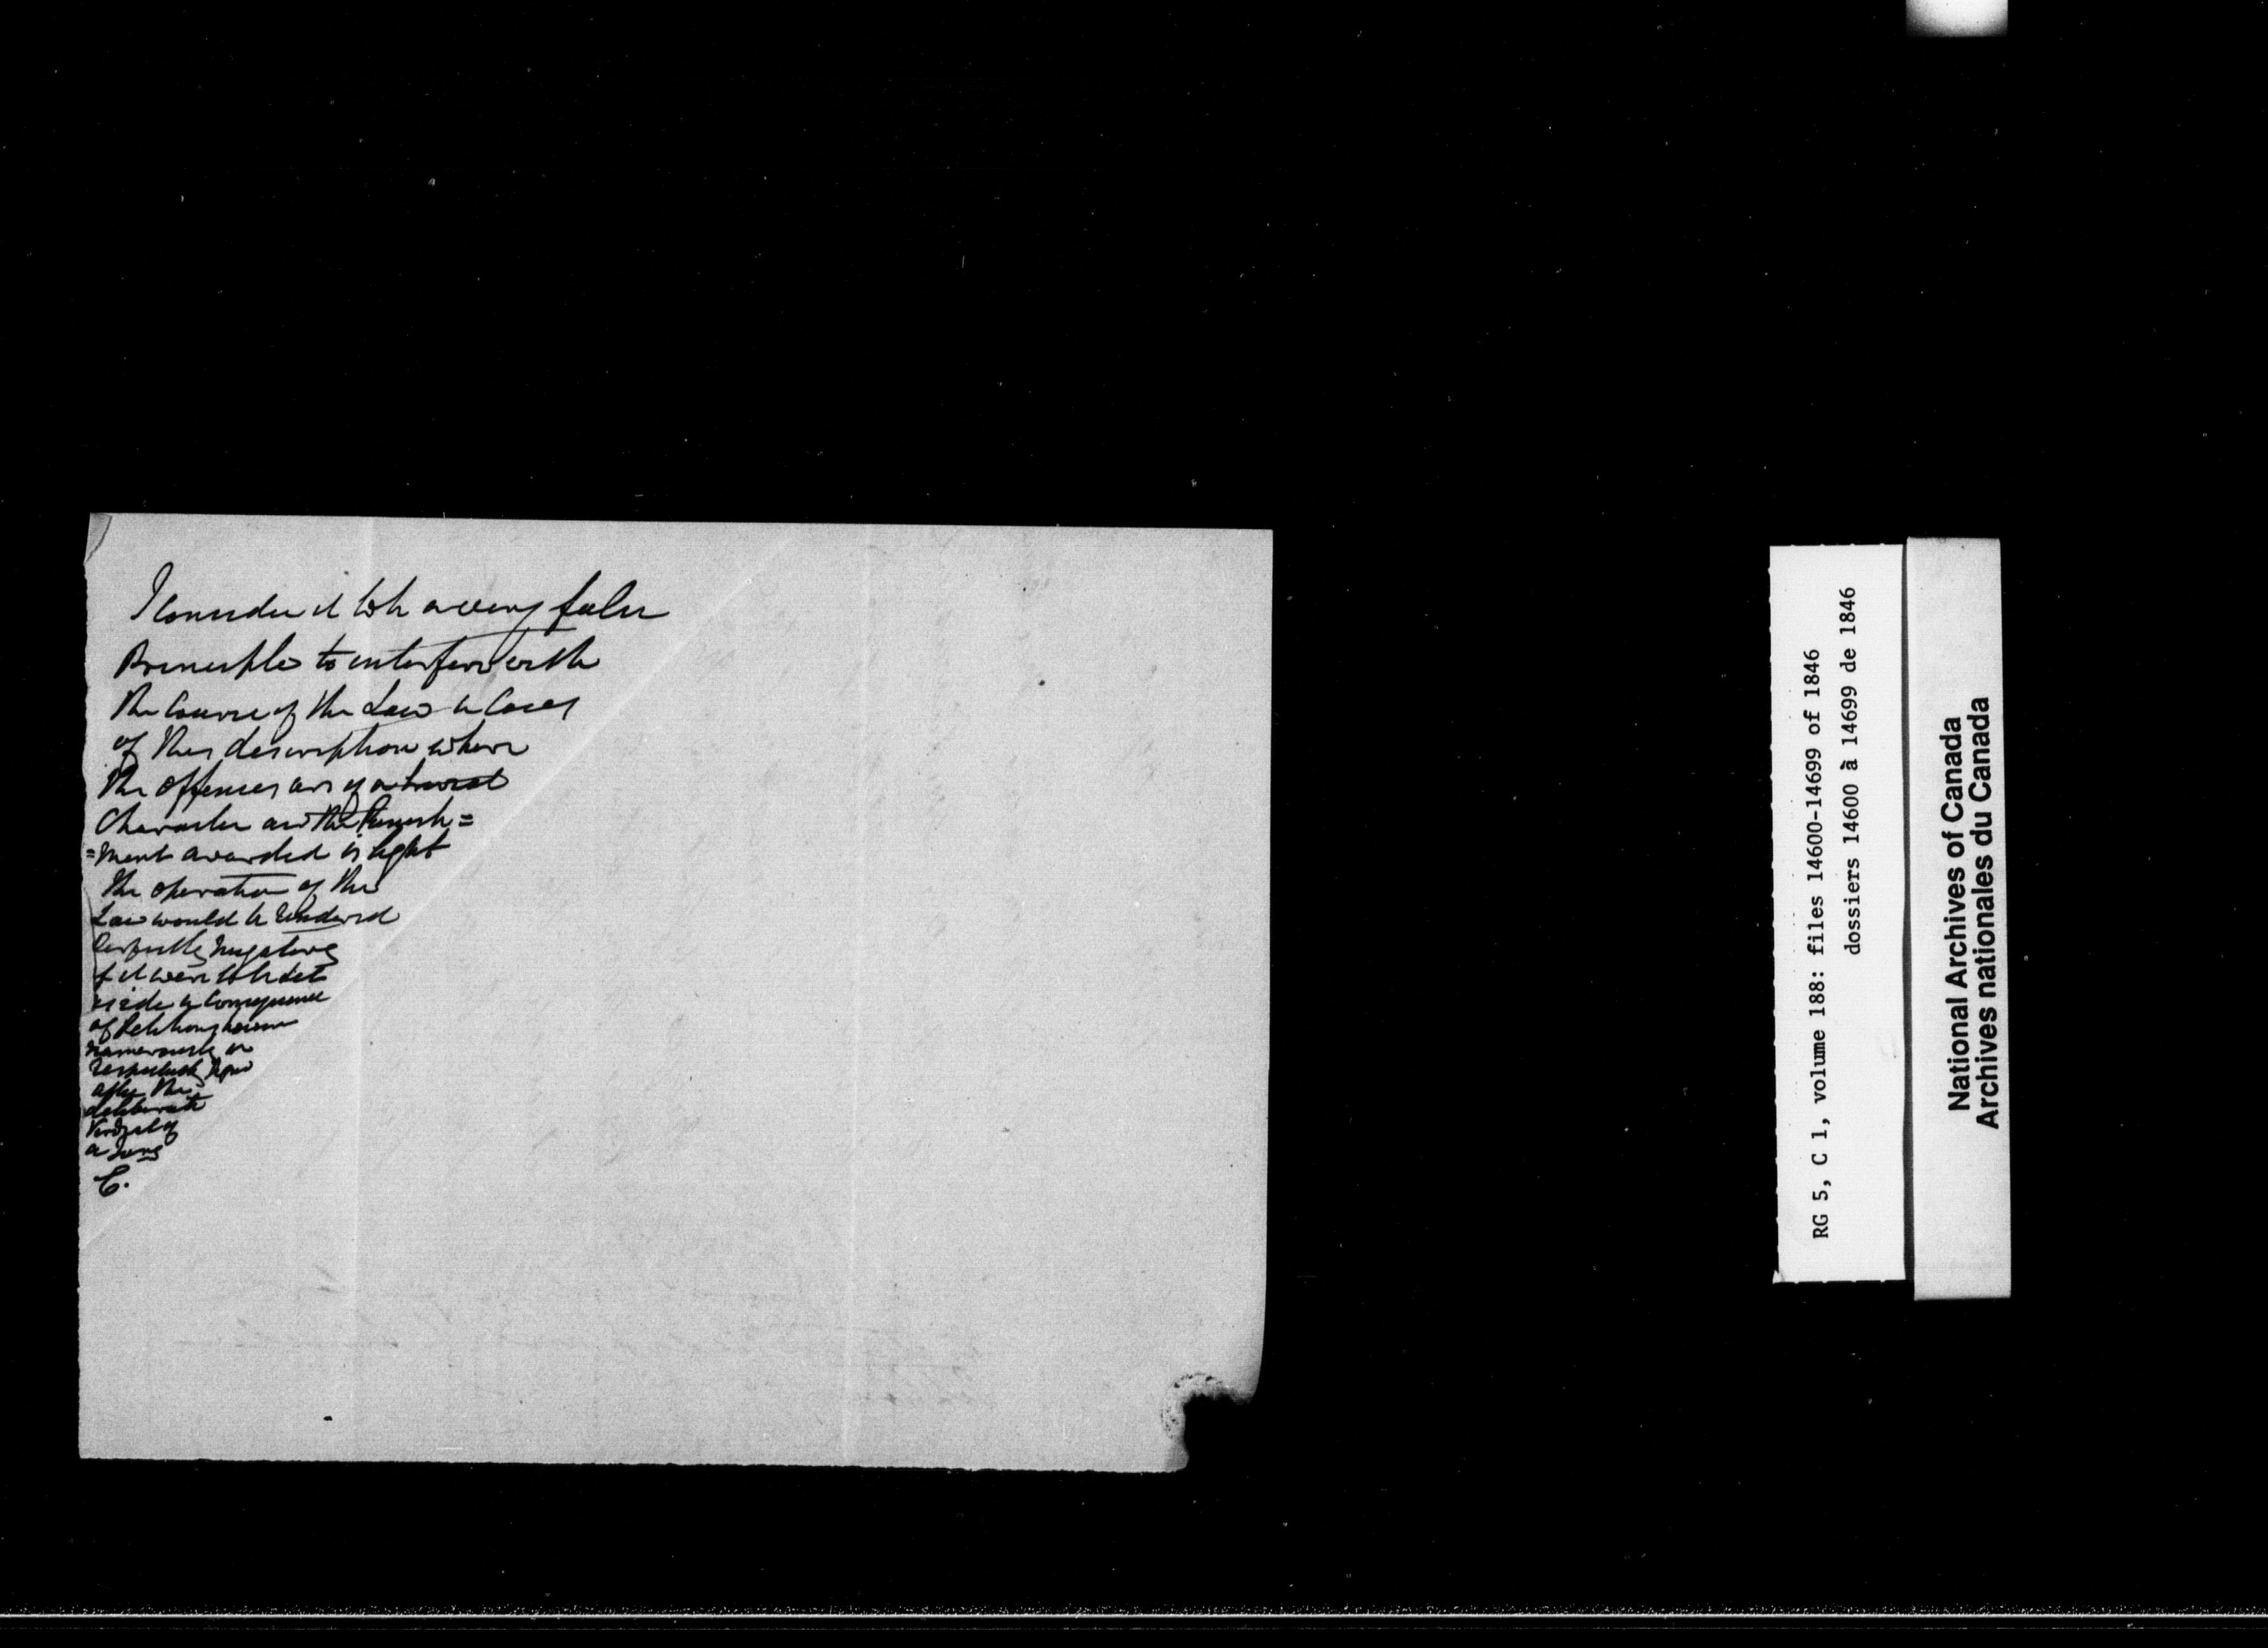 I consider it to be a very false
Principle to interfere with
the Course of the Law in Cases
of this description where
the offences are of a trivial
Character and the Punish=
=ment awarded is light
The operation of the
Law would be rendered
Perfectly nugatory
if it were to be set
aside in Consequence
of Petitions however
numerously or
respectably signed
after the
deliberate
Verdict of
a Jury
C.
RG 5, C 1, volume 188: files 14600-14699 of 1846
dossiers 14600 à 14699 de 1846
National Archives of Canada
Archives nationales du Canada